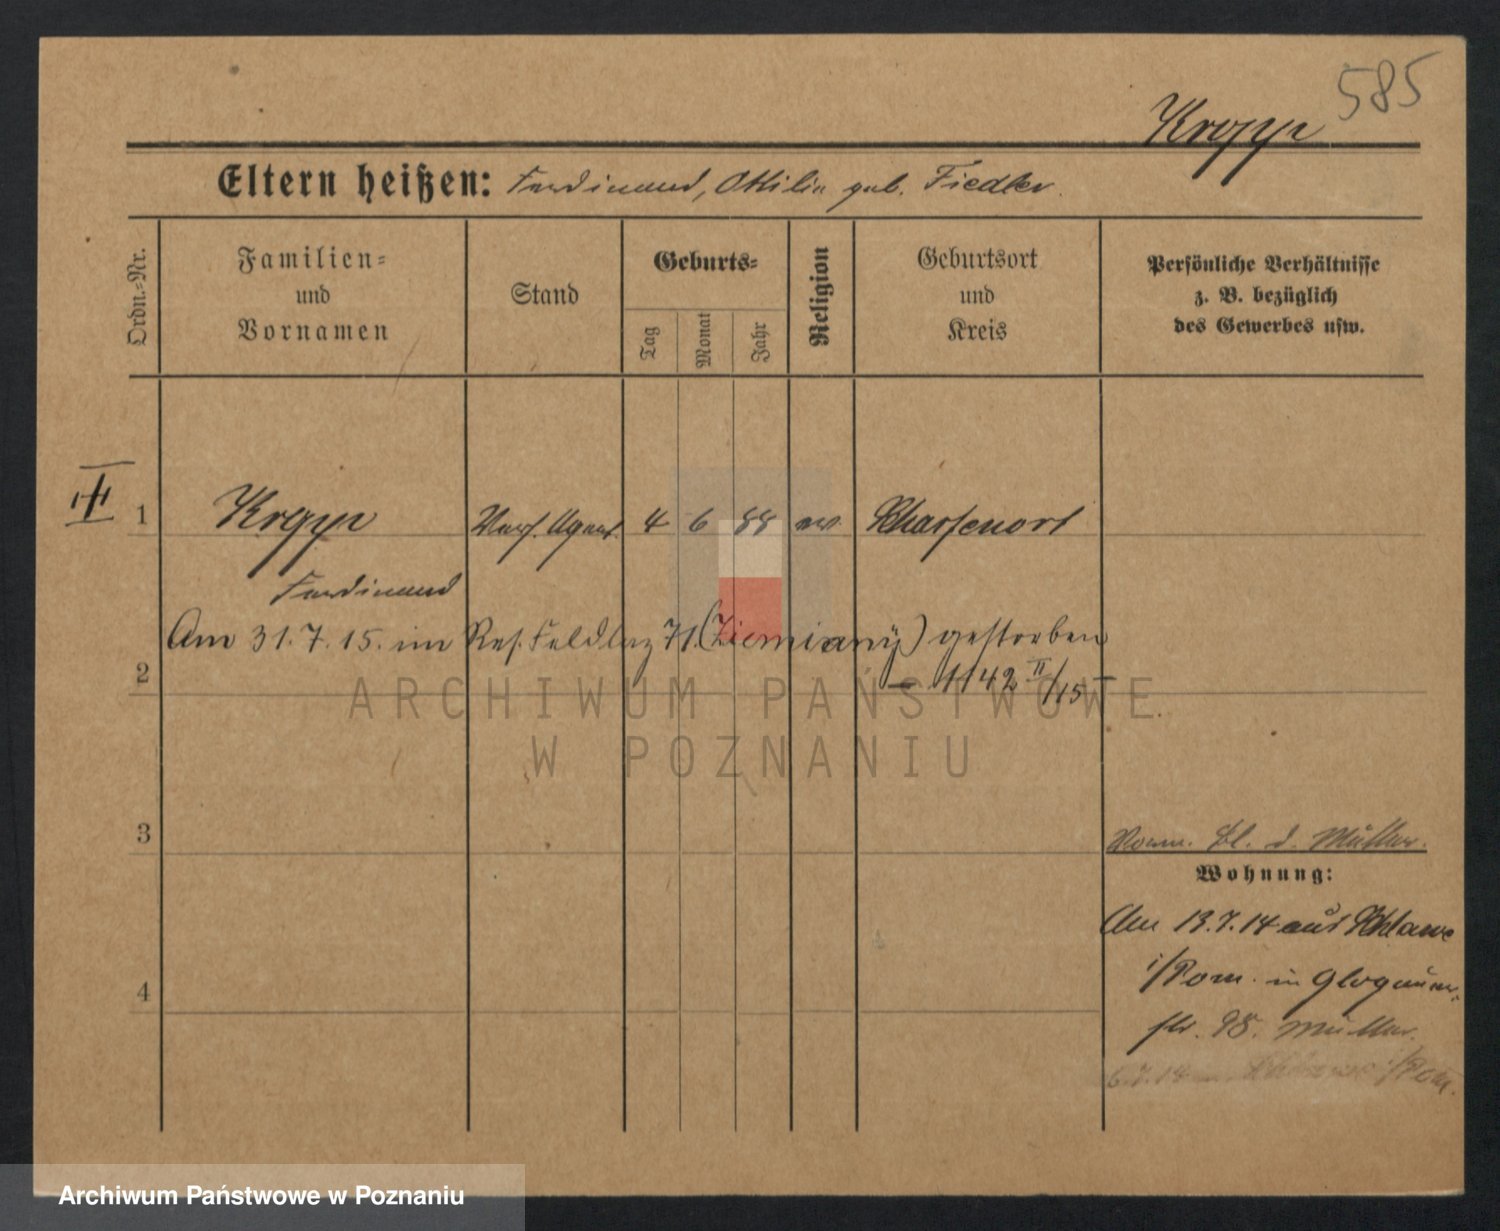 585
Kropp
Eltern heißen: Ferdinand, Ottilie geb. Fiedler.
Ordn.-Nr.
Familien-
und
Vornamen
Stand
Geburts-
Tag
Monat
Jahr
Religion
Geburtsort
und
Kreis
Persönliche Verhältnisse
z. B. bezüglich
des Gewerbes usw.
1 Kropp Vers. Agent 4 6 88 ev Scharfenort
Ferdinand
Am 31.7.15. im Res. Feldlaz 71. (Ziemiany) gestorben
2 – 1142 II/15 –
ARCHIWUM PAŃSTWOWE
W POZNANIU
3
Vorm. d. Müller.
Wohnung:
Am 13.7.14 aus Schlawe
i/Pom. in Glogauer-
str. 98. Müller.
4
i/Pom.
Archiwum Państwowe w Poznaniu